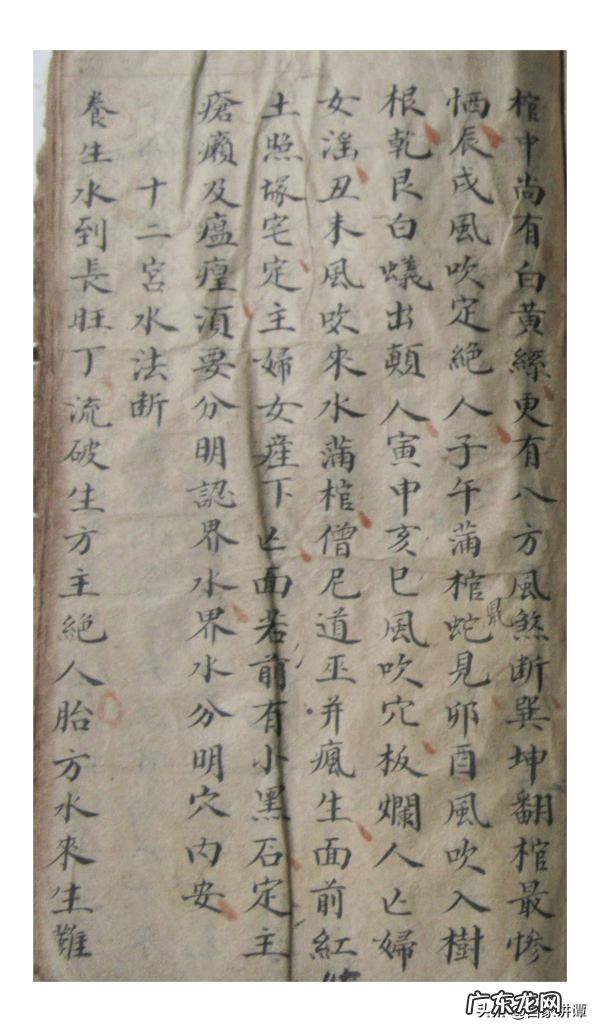 棺中尚有白黃絲更有八方風煞断巽坤翻棺最慘
恓辰戌風吹定絶人子午蒲棺蛇鼠見卯酉風吹入樹
根乾艮白蟻出顛人寅申亥巳風吹穴板爛人亡婦
女滛丑未風吹來水蒲棺僧尼道巫并瘋生面前紅
土照塚宅定主婦女産下亡面若前有小黑石定主
瘡癩及瘟湏要分明認界水界水分明穴内安
十二宮水法断
養生水到長旺丁流破生方主絶人胎方水來生難
广东龙网